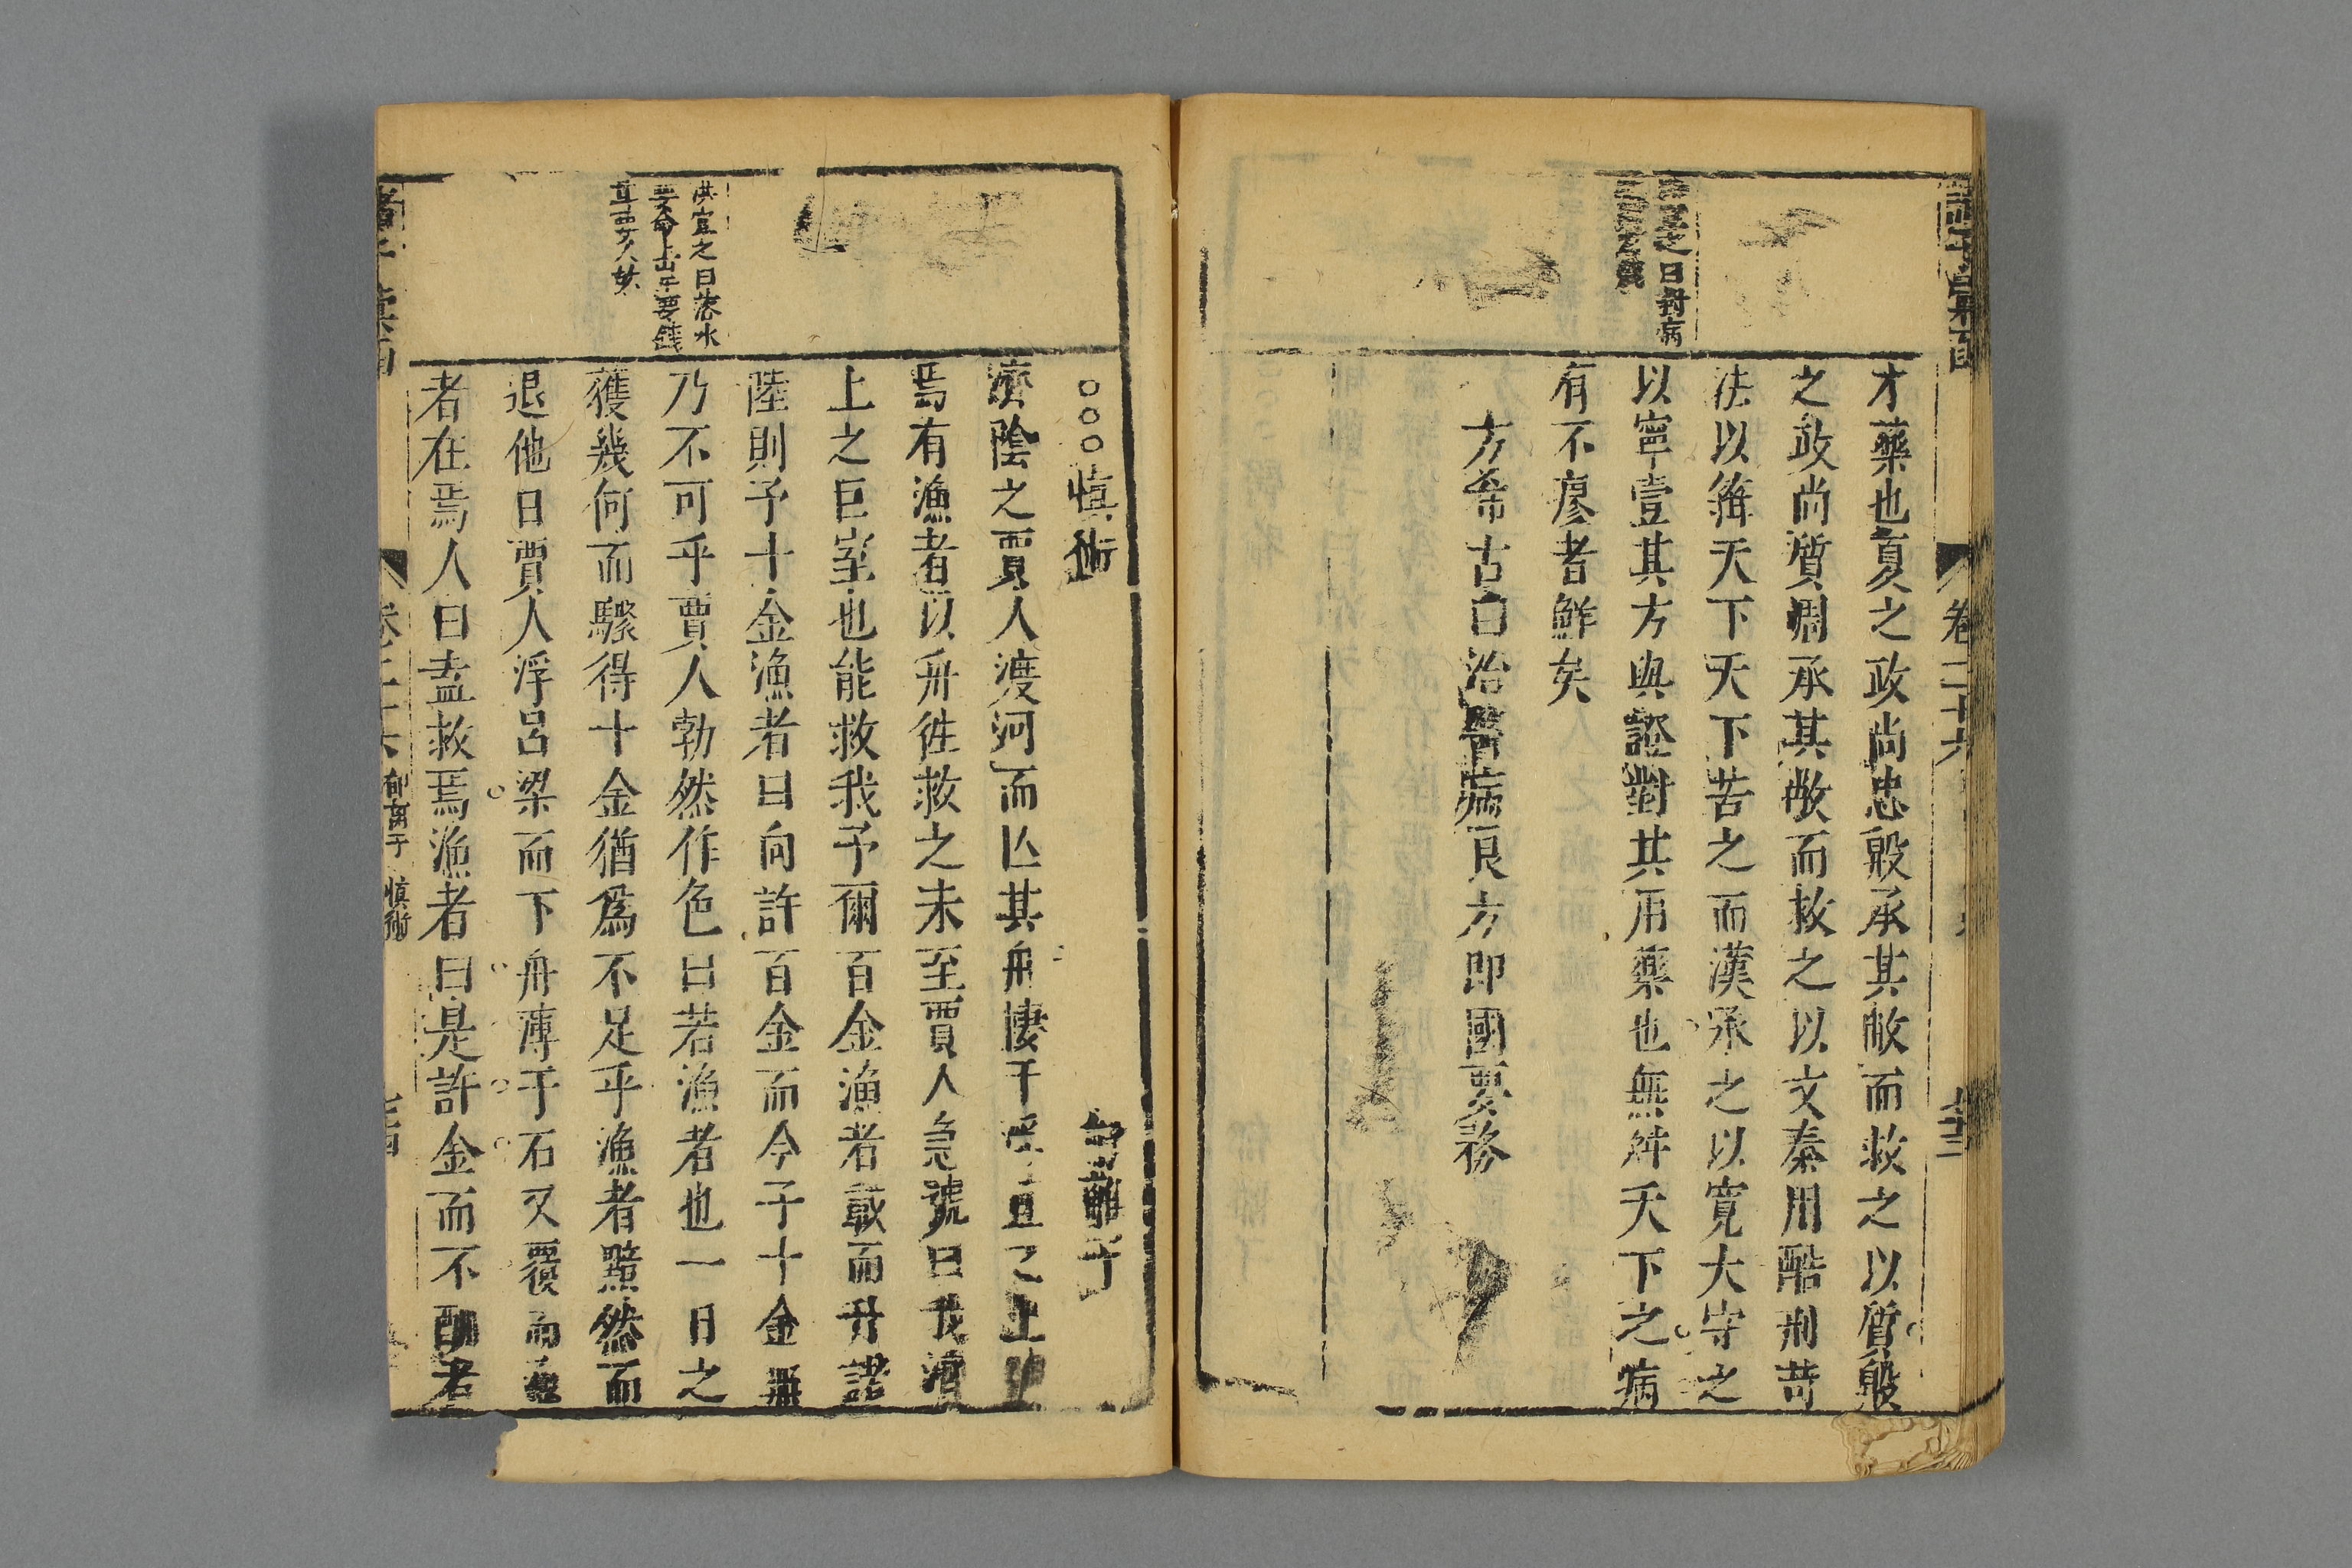 諸子彙函
卷二十六
之曰對病
才藥也夏之政尚忠殷承其敝而救之以質殷
之政尚質周承其敝而救之以文秦用酷刑苛
法以箝天下天下苦之而漢承之以寬大守之
以寧壹其方與證對其用藥也無舛天下之病
有不瘳者鮮矣
方希古曰治醫病良方即國要務
洪宣之曰落水
要命上岸要錢
○○○慎術
郁離子
濟陰之賈人渡河而亾其舟棲于苴之上
焉有漁者以舟徃救之未至賈人急號曰我濟
上之巨室也能救我予爾百金漁者載而升諸
陸則予十金漁者曰向許百金而今予十金無
乃不可乎賈人勃然作色曰若漁者也一日之
獲幾何而驟得十金猶爲不足乎漁者黯然而
退他日賈人浮呂梁而下舟薄于石又覆而
者在焉人曰盍救焉漁者曰是許金而不酬者
郁離子 慎術